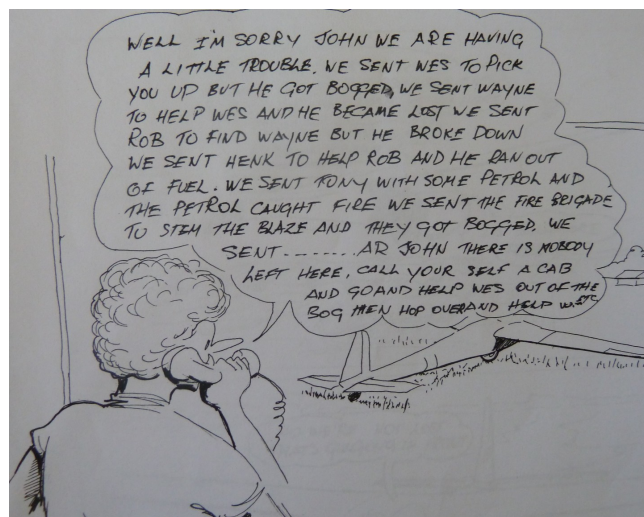 WELL I'M SORRY JOHN WE ARE HAVING
A LITTLE TROUBLE. WE SENT WES TO PICK
YOU UP BUT HE GOT BOGGED, WE SENT WAYNE
TO HELP WES AND HE BECAME LOST WE SENT
ROB TO FIND WAYNE BUT HE BROKE DOWN
WE SENT HENK TO HELP ROB AND HE RAN OUT
OF FUEL. WE SENT TONY WITH SOME PETROL AND
THE PETROL CAUGHT FIRE WE SENT THE FIRE BRIGADE
TO STEM THE BLAZE AND THEY GOT BOGGED. WE
SENT........ AR JOHN THERE IS NOBODY
LEFT HERE, CALL YOUR SELF A CAB
AND GO AND HELP WES OUT OF THE
BOG THEN HOP OVER AND HELP W... ETC